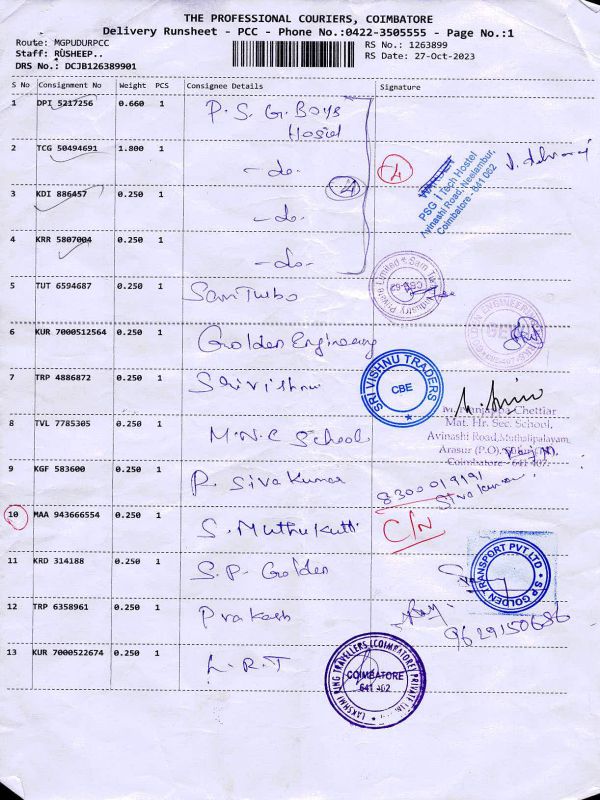 THE PROFESSIONAL COURIERS, COIMBATORE
Delivery Runsheet - PCC - Phone No.:0422-3505555 - Page No.:1
Route: MGPUDURPCC
Staff: RUSHEEP..
DRS No.: DCJB126389901
RS No.: 1263899
RS Date: 27-Oct-2023
S No Consignment No Weight PCS Consignee Details Signature
1 DPI 5217256 0.660 1 P. S. G. Boys
Hostel
2 TCG 50494691 1.800 1 -do-
4
4
WARDEN
PSG iTech Hostel
Avinashi Road, Neelambur,
Coimbatore - 641 062
3 KDI 886457 0.250 1 -do-
4 KRR 5807004 0.250 1 -do-
5 TUT 6594687 0.250 1 Sam Turbo
6 KUR 7000512564 0.250 1 Golden Engineering
7 TRP 4886872 0.250 1 Sri Vishnu
SRI VISHNU TRADERS
CBE
8 TVL 7785305 0.250 1 M.N.C School
Chettiar
Mat. Hr. Sec. School,
Avinashi Road, Muthalipalayam,
Arasur (P.O),
Coimbatore - 641 407.
9 KGF 583600 0.250 1 R. Siva Kumar
8300019191
Siva kumar
10 MAA 943666554 0.250 1 S. Muthukutti C/N
11 KRD 314188 0.250 1 S.P. Golden
S.P GOLDEN TRANSPORT PVT LTD
12 TRP 6358961 0.250 1 Prakash
9629150686
13 KUR 7000522674 0.250 1 L.R.T
LAKSHMI RING TRAVELLERS (COIMBATORE) PRIVATE LIMITED
COIMBATORE
641 402